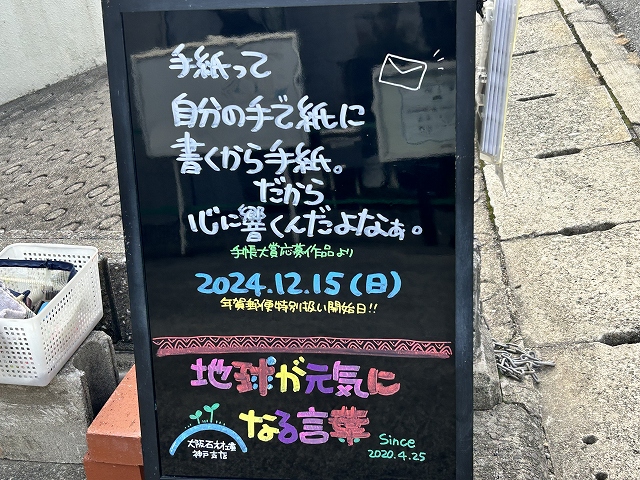 手紙って
自分の手で紙に
書くから手紙。
だから
心に響くんだよなぁ。
手帳大賞応募作品より
2024.12.15(日)
年賀郵便特別扱い開始日!!
地球が元気に
なる言葉
大阪石材工業
神戸店
Since
2020.4.25